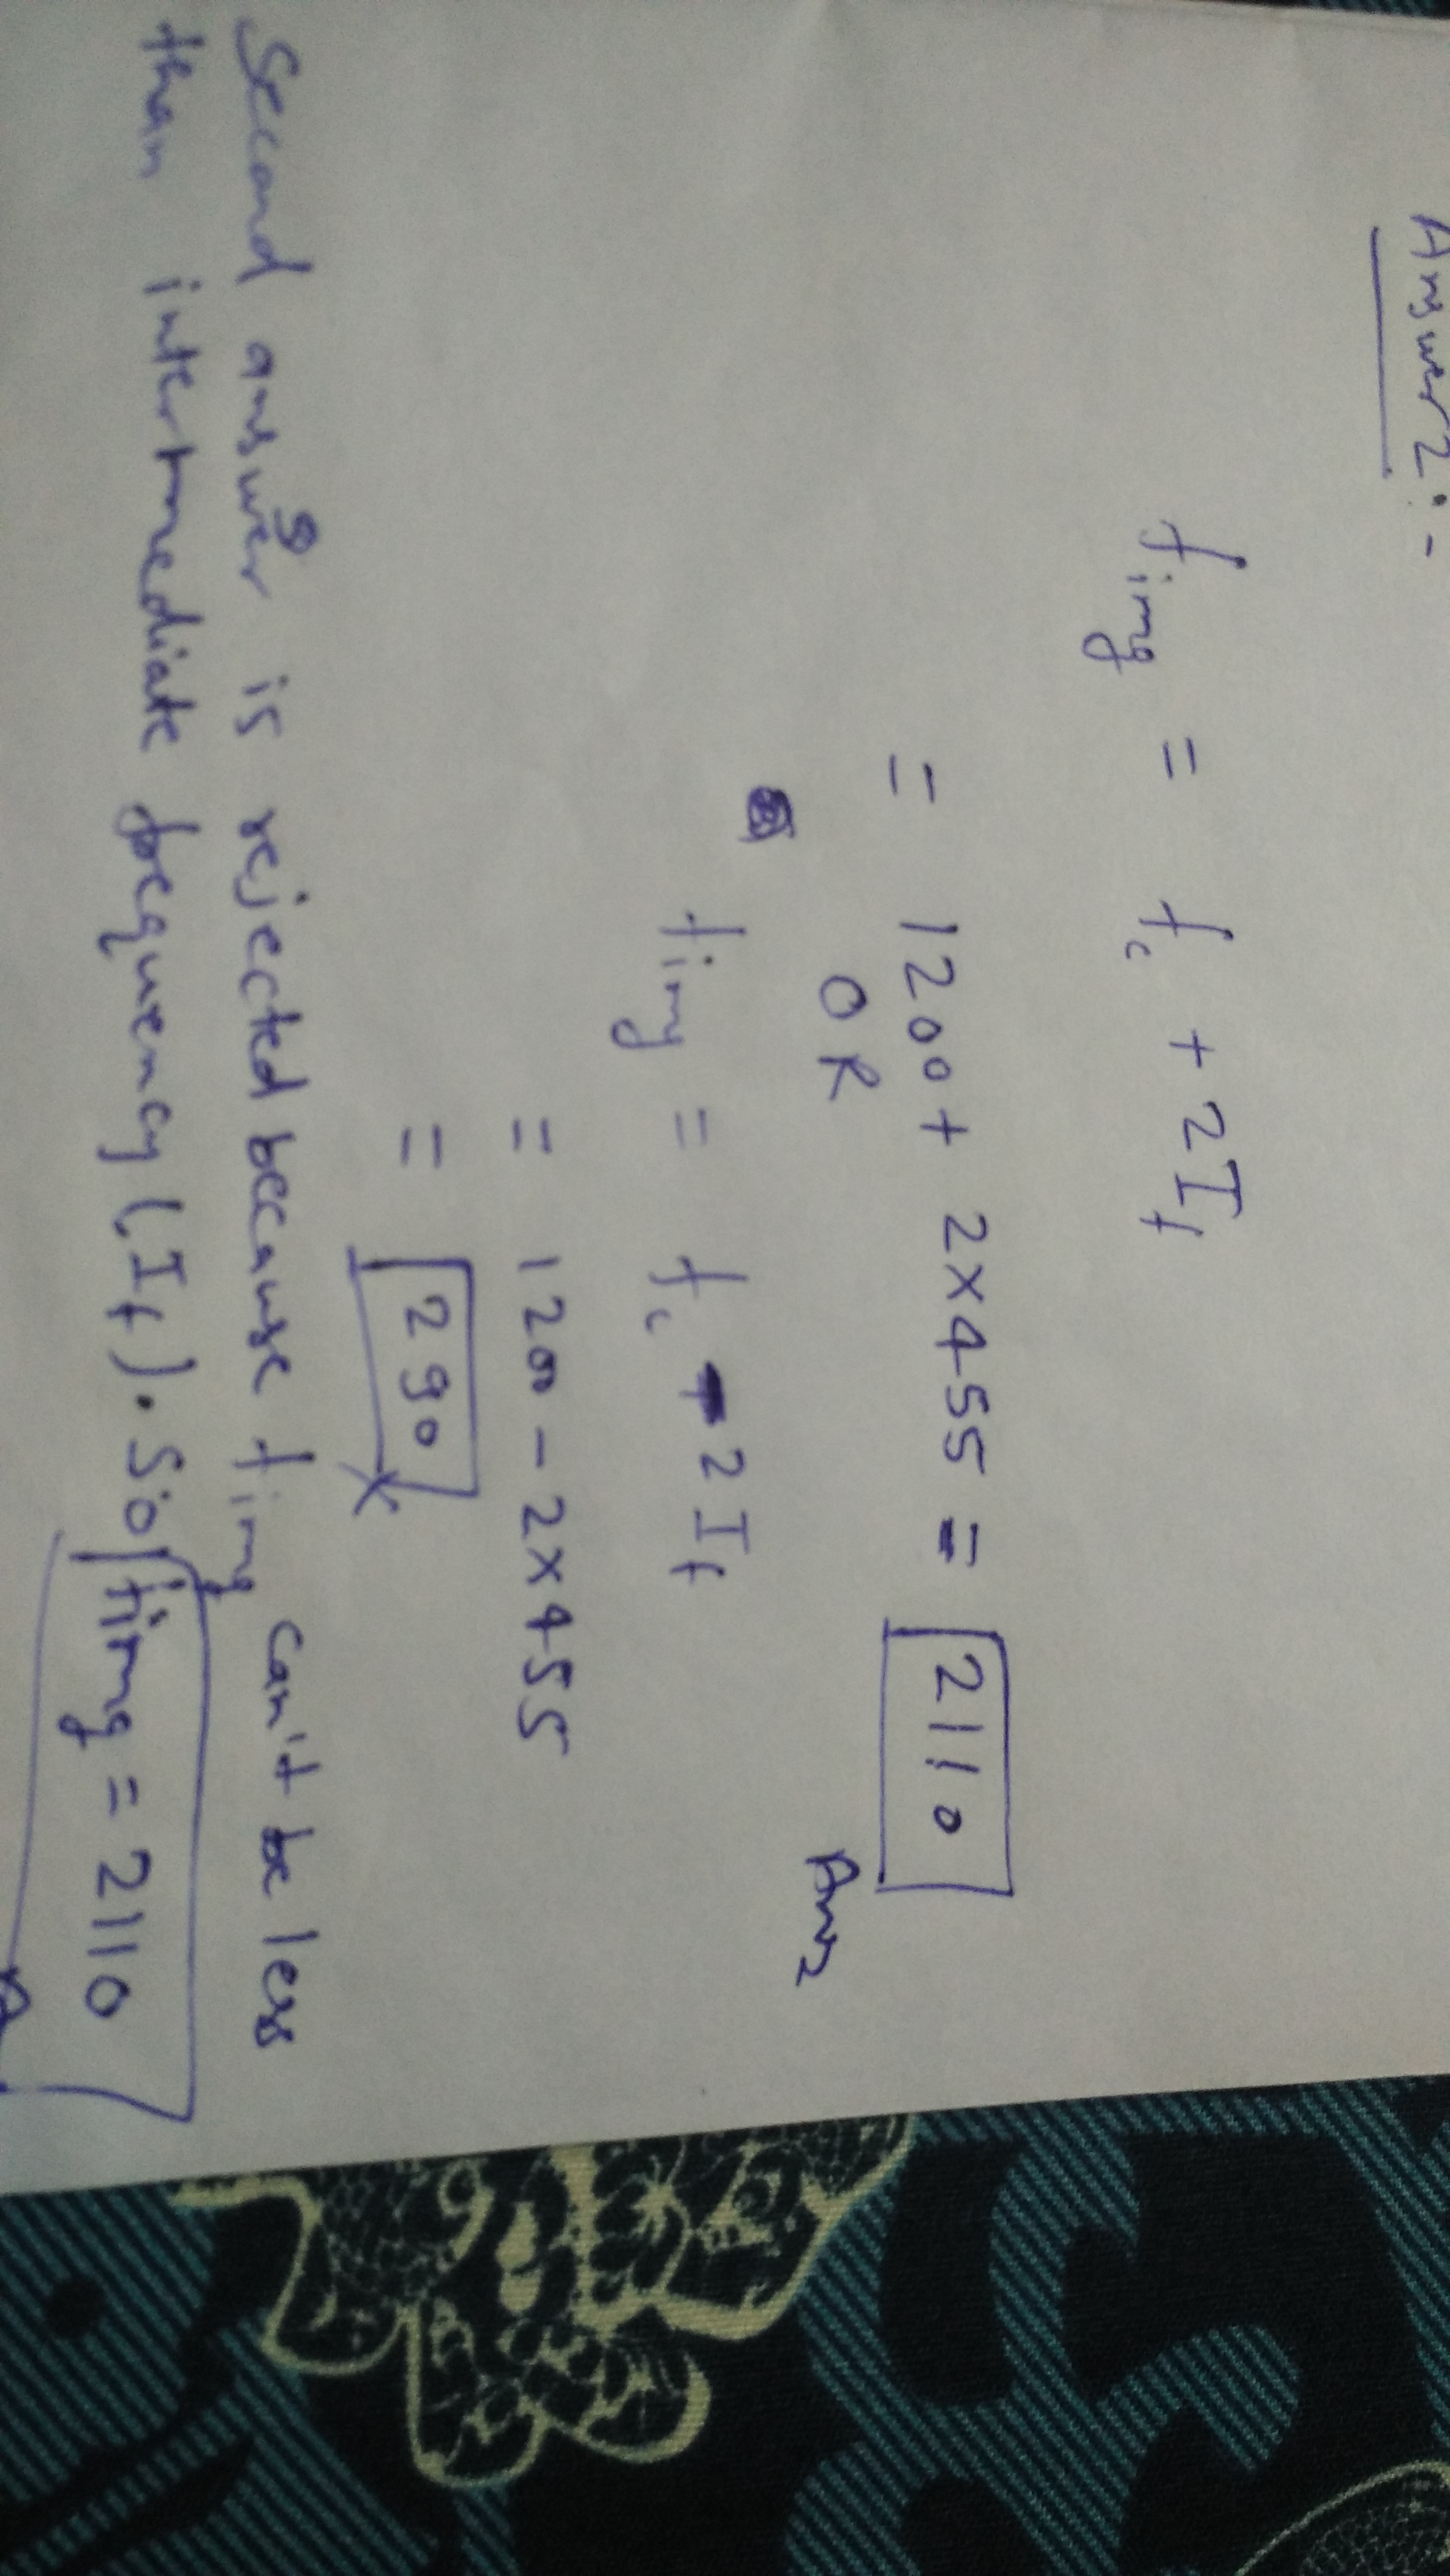 Answer 2:-
fimg = fc + 2If
= 1200 + 2x455 = 2110
Ans
OR
fimg = fc - 2If
= 1200 - 2x455
= 290 x
Second answer is rejected because fimg can't be less
than intermediate frequency (If). So fimg = 2110